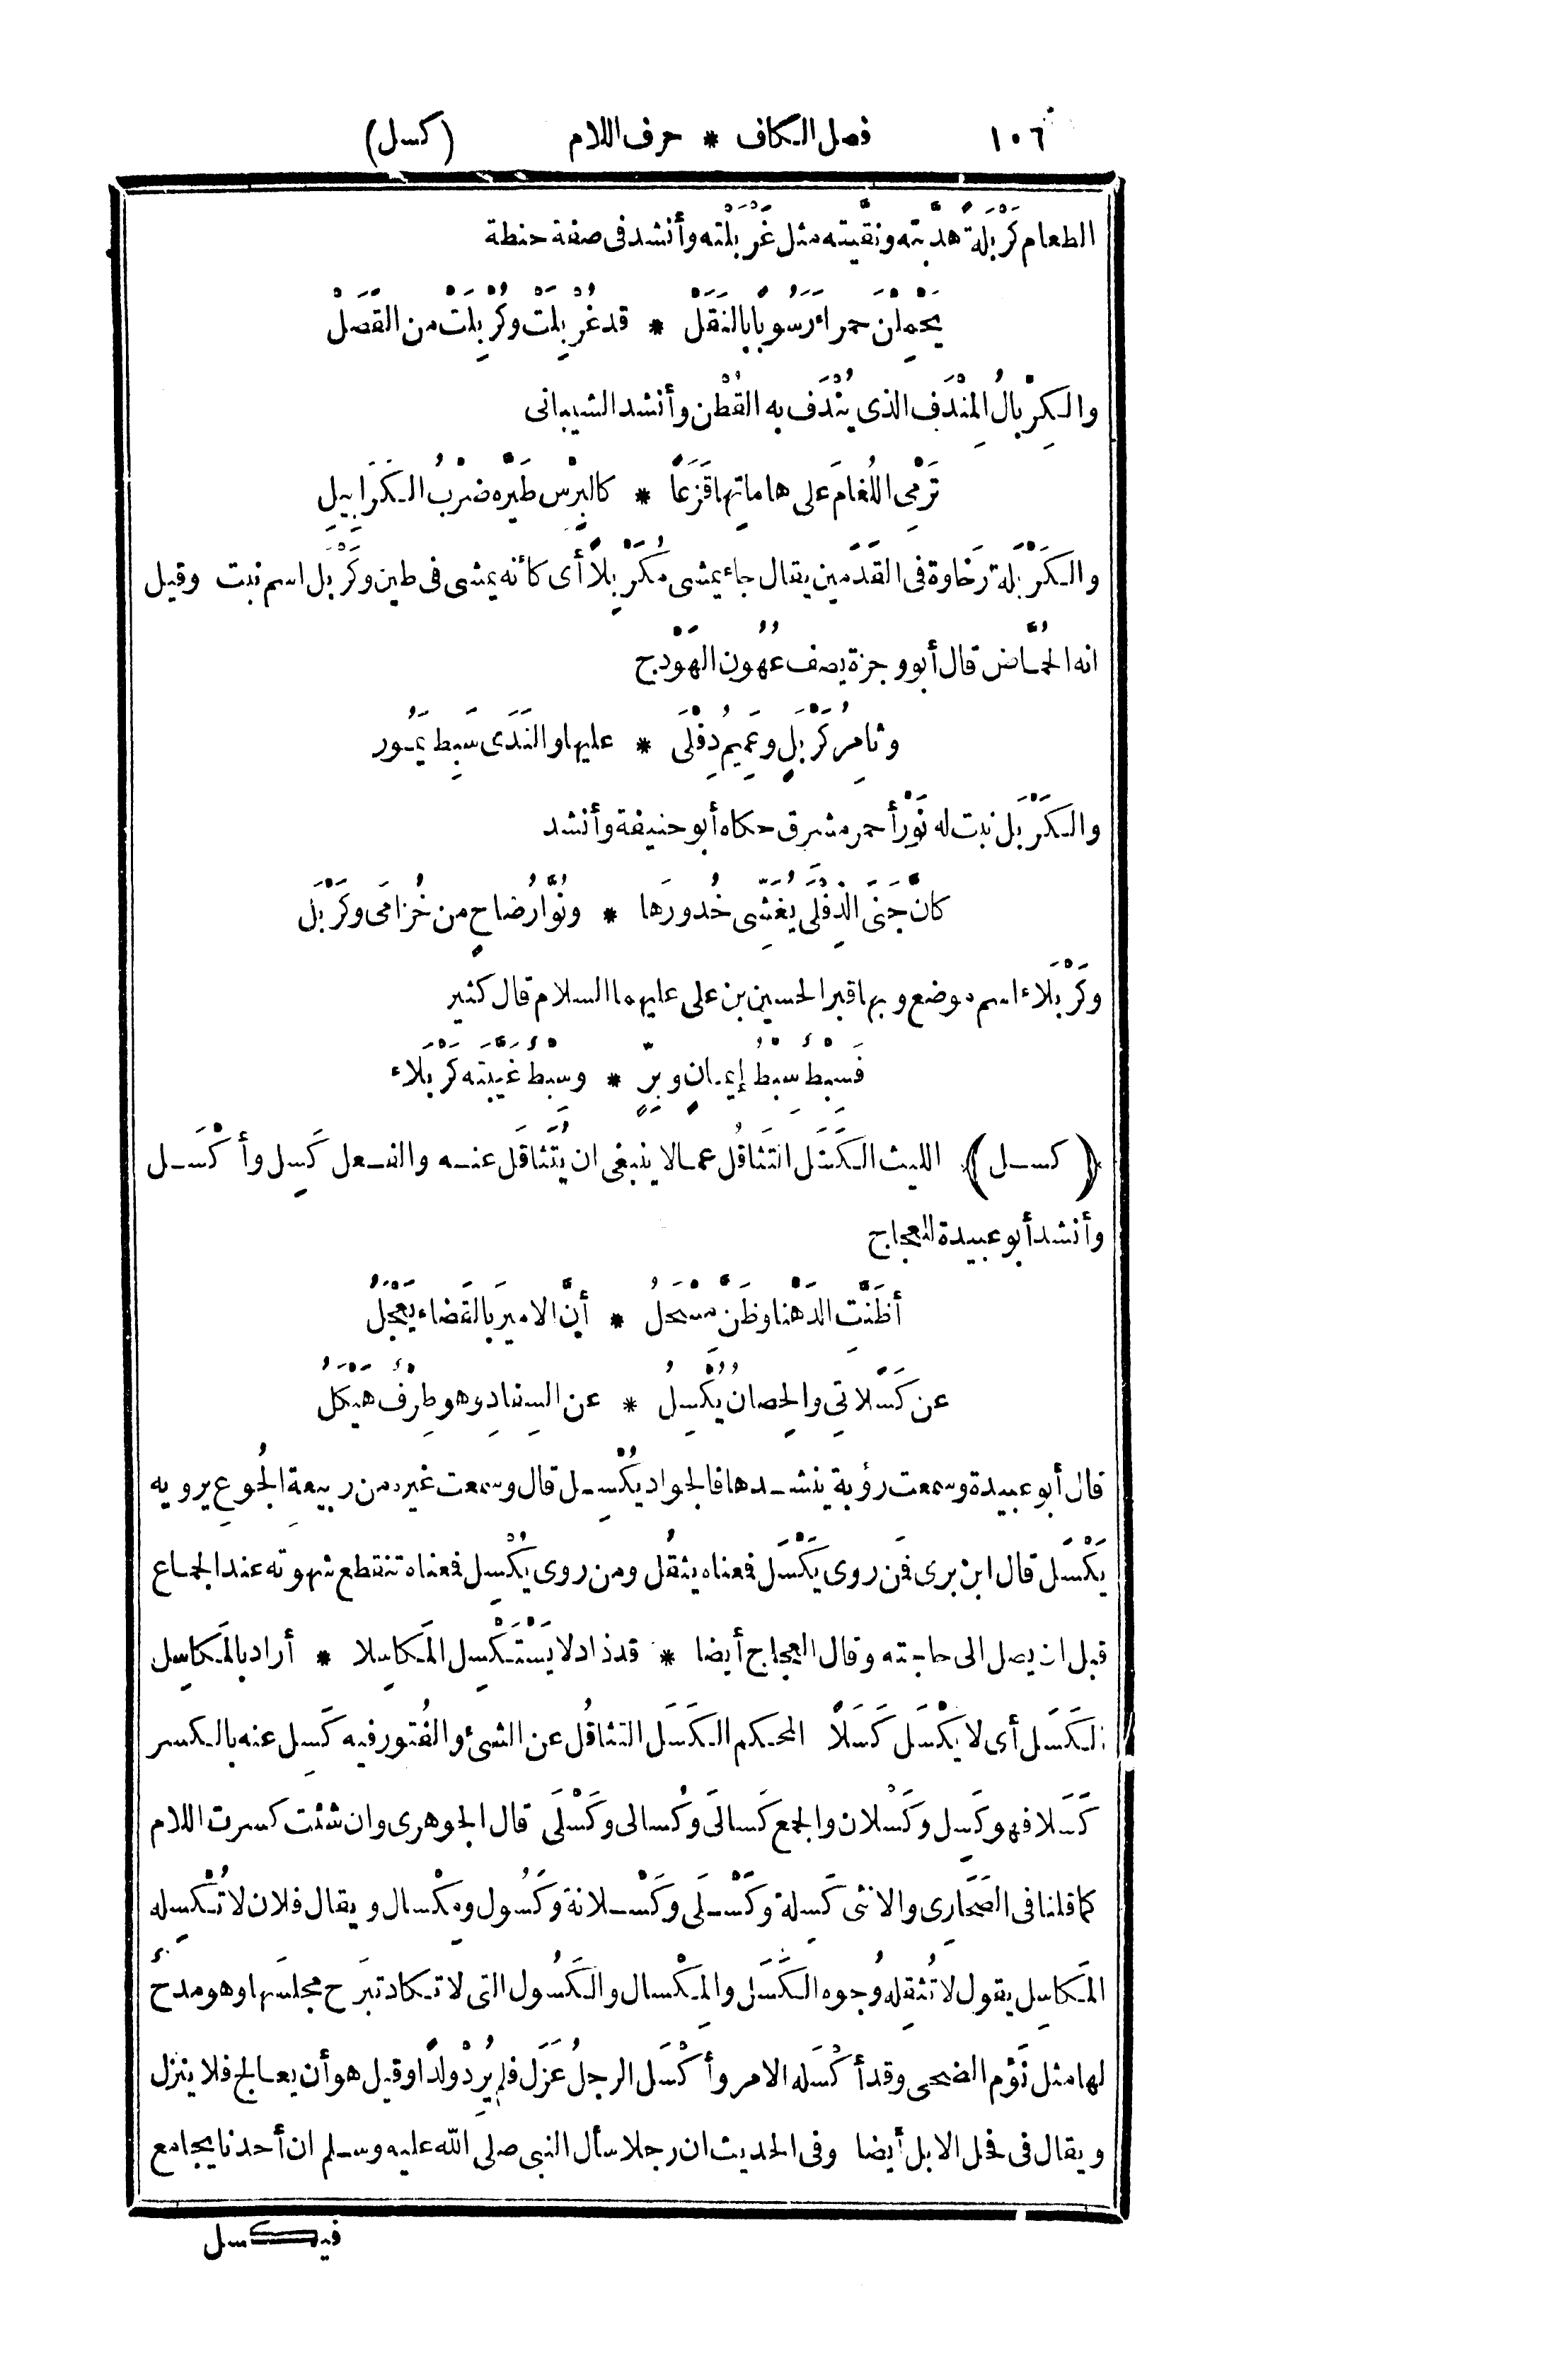 ١٠٦ فصل الكاف * حرف اللام (كسل)
الطعام كَرْبَلةً هذَّبته ونقَّيته مثل غَرْبَلْته وأنشد فى صفة حنطة
يَحْمِلْنَ حمراءَ رَسُوبًا بالنَقَلْ * قد غُرْبِلَتْ وكُرْبِلَتْ من القَصَلْ
والكِرْبالُ المِنْدَف الذى يُنْدَف به القُطْن وأنشد الشيبانى
تَرْمِى اللُغامَ على هاماتِها قَزَعًا * كالبِرْسِ طَيَّرَه ضرْبُ الكَرَابِيلِ
والكَرْبَلة رَخاوة فى القَدَمين يقال جاء يمشى مُكَرْبِلًا أى كأنه يمشى فى طين وكَرْبَل اسم نبت وقيل
انه الحُمَّاض قال أبو وجزة يصف عُهُون الهَوْدج
وثامِرُ كَرْبَلٍ وعَمِيمُ دِفْلَى * عليها والنَدَى سَبِط يَمُور
والكَرْبَل نبت له نَوْر أحمر مشرق حكاه أبو حنيفة وأنشد
كانَّ جَنَى الدِفْلَى يُغَشِّى خُدورَها * ونُوَّارُ ضاحٍ من خُزامَى وكَرْبَل
وكَرْبَلَاء اسم موضع وبها قبر الحسين بن على عليهما السلام قال كثير
فَسِبْطٌ سِبْطُ إيمانٍ وبِرٍّ * وسِبْطٌ غَيَّبَتْه كَرْبَلَاء
﴿كسل﴾ الليث الكَسَل التَثاقُل عمالا ينبغى ان يُتَثاقَل عنه والفعل كَسِل وأكْسَل
وأنشد أبو عبيدة للعجاج
أظَنَّتِ الدَهْنا وظَنَّ مِسْحَلُ * أنَّ الاميرَ بالقَضاء يَعْجَلُ
عن كَسَلاتِى والحِصانُ يُكْسِلُ * عن السِفادِ وهو طِرْفٌ هَيْكَلُ
قال أبو عبيدة وسمعت رؤبة ينشدها فالجواد يُكْسِل قال وسمعت غيره من ربيعةِ الجُوعِ يرويه
يَكْسَل قال ابن برى فَمن روى يَكْسَل فمعناه يثقُل ومن روى يُكْسِل فمعناه تنقطع شهوته عند الجماع
قبل ان يصل الى حاجته وقال العجاج أيضا * قد ذاد لا يَسْتَكْسِل المَكاسِلا * أراد بالمَكاسِل
الكَسَل أى لا يَكْسَل كَسَلًا المحكم الكَسَل التثاقُل عن الشئ والفُتور فيه كَسِل عنه بالكسر
كَسَلا فهو كَسِل وكَسْلان والجمع كَسالَى وكُسالى وكَسْلَى قال الجوهرى وان شئت كسرت اللام
كما قلنا فى الصَحَارِى والانثى كَسِلة وكَسْلَى وكَسْلانة وكَسُول ومِكْسال ويقال فلان لا تُكْسِله
المَكاسِل يقول لا تُثقِله وُجوه الكَسَل والمِكْسال والكَسُول التى لا تكاد تبرَح مجلسَها وهو مدحٌ
لها مثل نَؤُم الضحى وقد أكْسَله الامر وأكْسَل الرجلُ عَزَل فلم يُرِدْ ولدًا وقيل هو أن يعالج فلا ينزل
ويقال فى فحل الابل أيضا وفى الحديث ان رجلا سأل النبى صلى الله عليه وسلم ان أحدنا يجامع
فيكسل